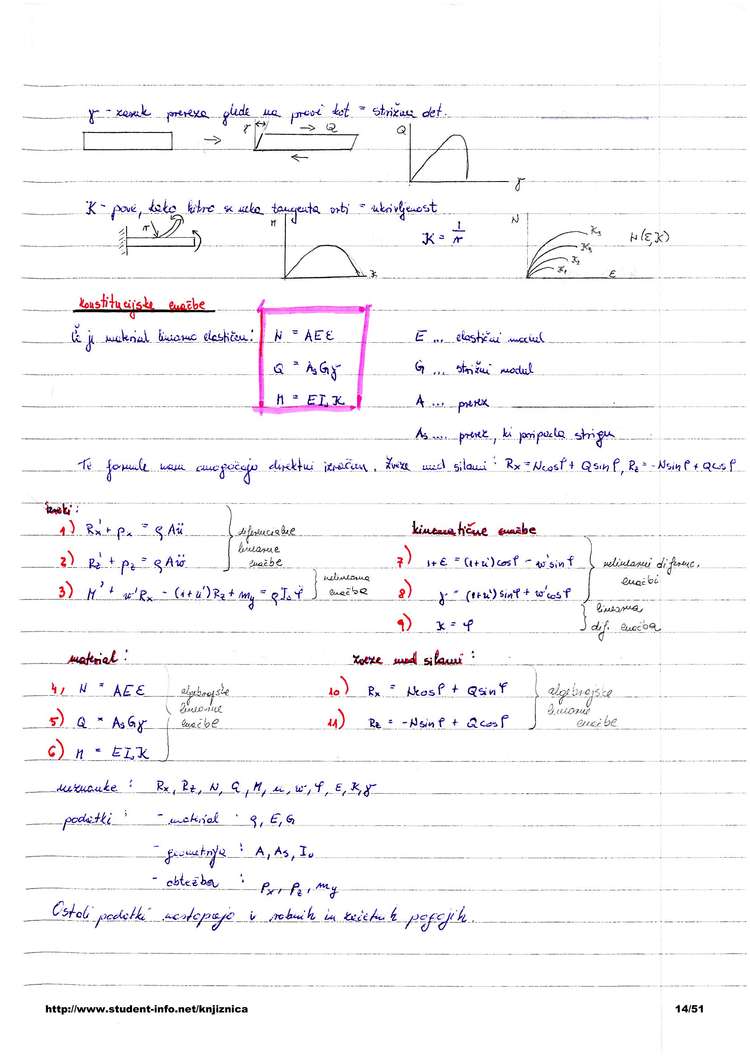 γ - zasuk prereza glede na pravi kot = strižna def.
γ → Q
Q
γ
K - pove, kako hitro se neka tangenta vrti = ukrivljenost
r
M
K
K = 1/r
N
K₄
K₃
K₂
K₁
ε
N(ε,K)
Konstitucijske enačbe
Če je material linearno elastičen: N = AEε E ... elastični modul
Q = AsGγ G ... strižni modul
M = EIvK A ... prerez
As ... prerez, ki pripada strigu
Te formule nam omogočajo direktni izračun. Zveze med silami: Rx = Ncosφ + Qsinφ, Rz = -Nsinφ + Qcosφ
1) Rx' + px = ρAü
2) Rz' + pz = ρAẅ
3) M' + w'Rx - (1+u')Rz + my = ρIvφ̈
diferencialne
linearne
enačbe
nelinearna
enačba
kinematične enačbe
7) 1+ε = (1+u')cosφ - w'sinφ
8) γ = (1+u')sinφ + w'cosφ
9) K = φ'
nelinearni diferenc.
enačbi
linearna
dif. enačba
material:
4) N = AEε
5) Q = AsGγ
6) M = EIvK
algebrajske
linearne
enačbe
zveze med silami:
10) Rx = Ncosφ + Qsinφ
11) Rz = -Nsinφ + Qcosφ
algebrajske
linearne
enačbe
neznanke: Rx, Rz, N, Q, M, u, w, φ, ε, K, γ
podatki: - material: ρ, E, G
- geometrija: A, As, Iv
- obtežba: px, pz, my
Ostali podatki nastopajo v robnih in začetnih pogojih.
http://www.student-info.net/knjiznica 14/51